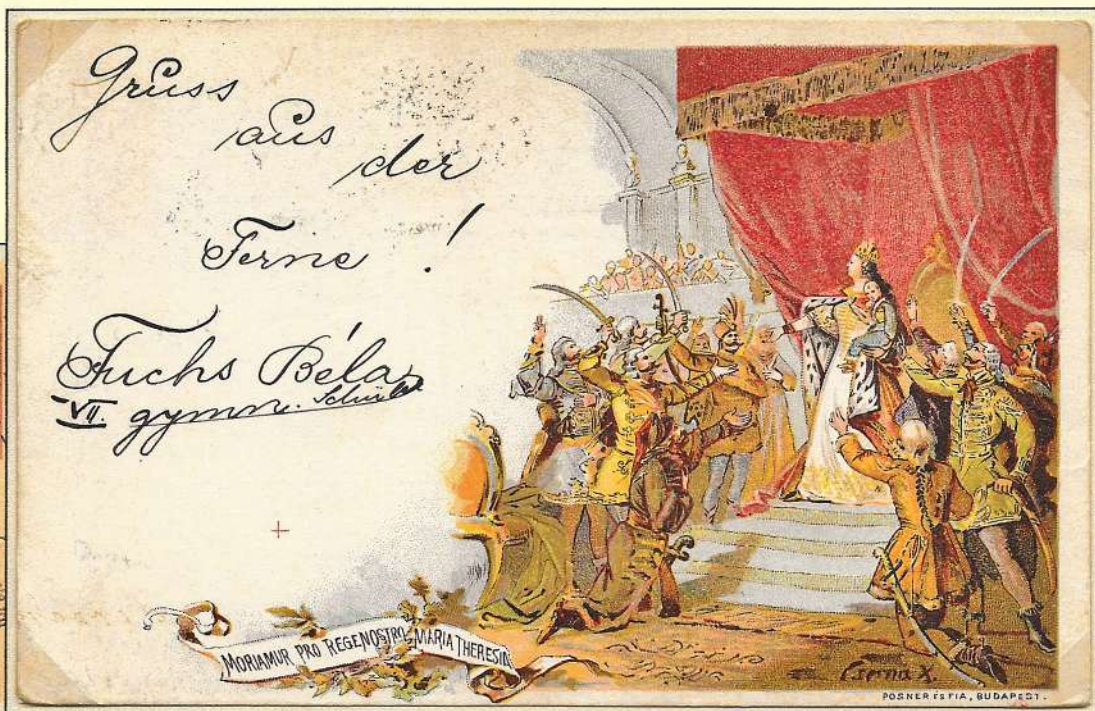 Gruss
aus
der
Ferne !
Fuchs Béla
VII. gymn.
MORIAMUR PRO REGE NOSTRO MARIA THERESIA
Cserna K.
POSNER ÉS FIA, BUDAPEST.